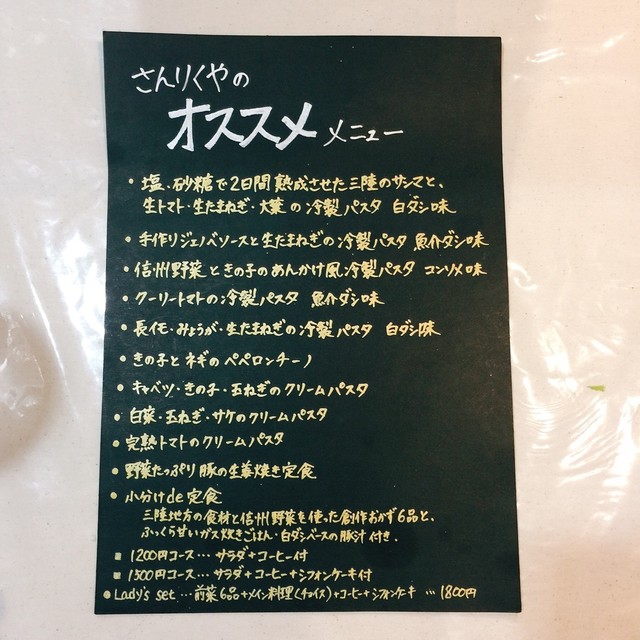 さんりくやの
オススメ メニュー
• 塩・砂糖で2日間熟成させた三陸のサンマと、
生トマト・生たまねぎ・大葉の冷製パスタ 白ダシ味
• 手作りジェノバソースと生たまねぎの冷製パスタ 魚介ダシ味
• 信州野菜ときの子のあんかけ風冷製パスタ コンソメ味
• クーリートマトの冷製パスタ 魚介ダシ味
• 長イモ・みょうが・生たまねぎの冷製パスタ 白ダシ味
• きの子とネギのペペロンチーノ
• キャベツ・きの子・玉ねぎのクリームパスタ
• 白菜・玉ねぎ・サケのクリームパスタ
• 完熟トマトのクリームパスタ
• 野菜たっぷり豚の生姜焼き定食
• 小分けde定食
三陸地方の食材と信州野菜を使った創作おかず6品と、
ふっくら甘いガス炊きごはん・白ダシベースの豚汁付き.
■ 1200円コース… サラダ+コーヒー付
■ 1500円コース… サラダ+コーヒー+シフォンケーキ付
● Lady's set … 前菜6品+メイン料理(チョイス)+コーヒー+シフォンケーキ …1800円